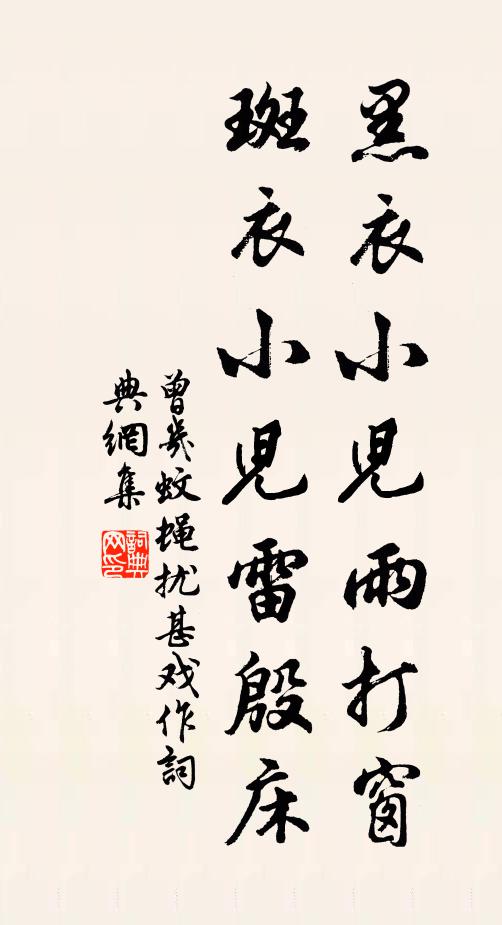 黑衣小児雨打窗
斑衣小児雷殷床
曾幾蚊蝇扰甚戏作詞
典網集
詞典网印